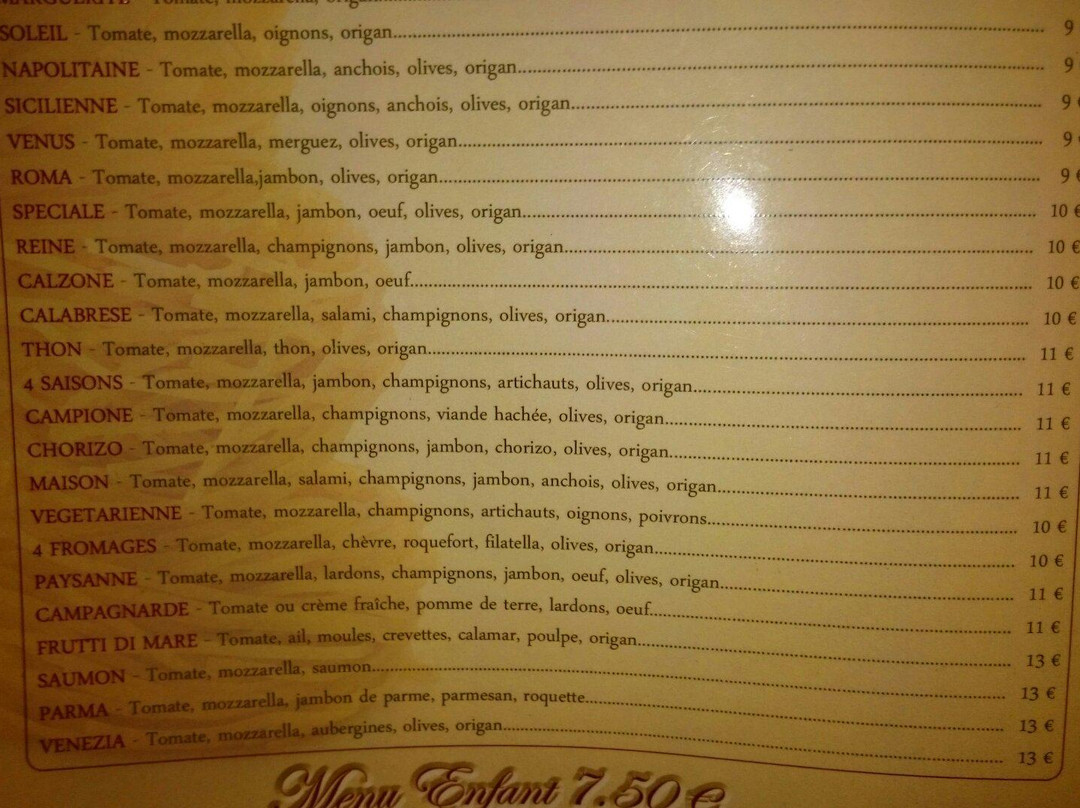 MARGUERITE - Tomate, mozzarella, origan
SOLEIL - Tomate, mozzarella, oignons, origan.......... 9
NAPOLITAINE - Tomate, mozzarella, anchois, olives, origan.......... 9
SICILIENNE - Tomate, mozzarella, oignons, anchois, olives, origan.......... 9 €
VENUS - Tomate, mozzarella, merguez, olives, origan.......... 9 €
ROMA - Tomate, mozzarella,jambon, olives, origan.......... 9 €
SPECIALE - Tomate, mozzarella, jambon, oeuf, olives, origan.......... 10 €
REINE - Tomate, mozzarella, champignons, jambon, olives, origan.......... 10 €
CALZONE - Tomate, mozzarella, jambon, oeuf.......... 10 €
CALABRESE - Tomate, mozzarella, salami, champignons, olives, origan.......... 10 €
THON - Tomate, mozzarella, thon, olives, origan.......... 11 €
4 SAISONS - Tomate, mozzarella, jambon, champignons, artichauts, olives, origan.......... 11 €
CAMPIONE - Tomate, mozzarella, champignons, viande hachée, olives, origan.......... 11 €
CHORIZO - Tomate, mozzarella, champignons, jambon, chorizo, olives, origan.......... 11 €
MAISON - Tomate, mozzarella, salami, champignons, jambon, anchois, olives, origan.......... 11 €
VEGETARIENNE - Tomate, mozzarella, champignons, artichauts, oignons, poivrons.......... 10 €
4 FROMAGES - Tomate, mozzarella, chèvre, roquefort, filatella, olives, origan.......... 10 €
PAYSANNE - Tomate, mozzarella, lardons, champignons, jambon, oeuf, olives, origan.......... 11 €
CAMPAGNARDE - Tomate ou crème fraîche, pomme de terre, lardons, oeuf.......... 11 €
FRUTTI DI MARE - Tomate, ail, moules, crevettes, calamar, poulpe, origan.......... 13 €
SAUMON - Tomate, mozzarella, saumon.......... 13 €
PARMA - Tomate, mozzarella, jambon de parme, parmesan, roquette.......... 13 €
VENEZIA - Tomate, mozzarella, aubergines, olives, origan.......... 13 €
Menu Enfant 7.50 €